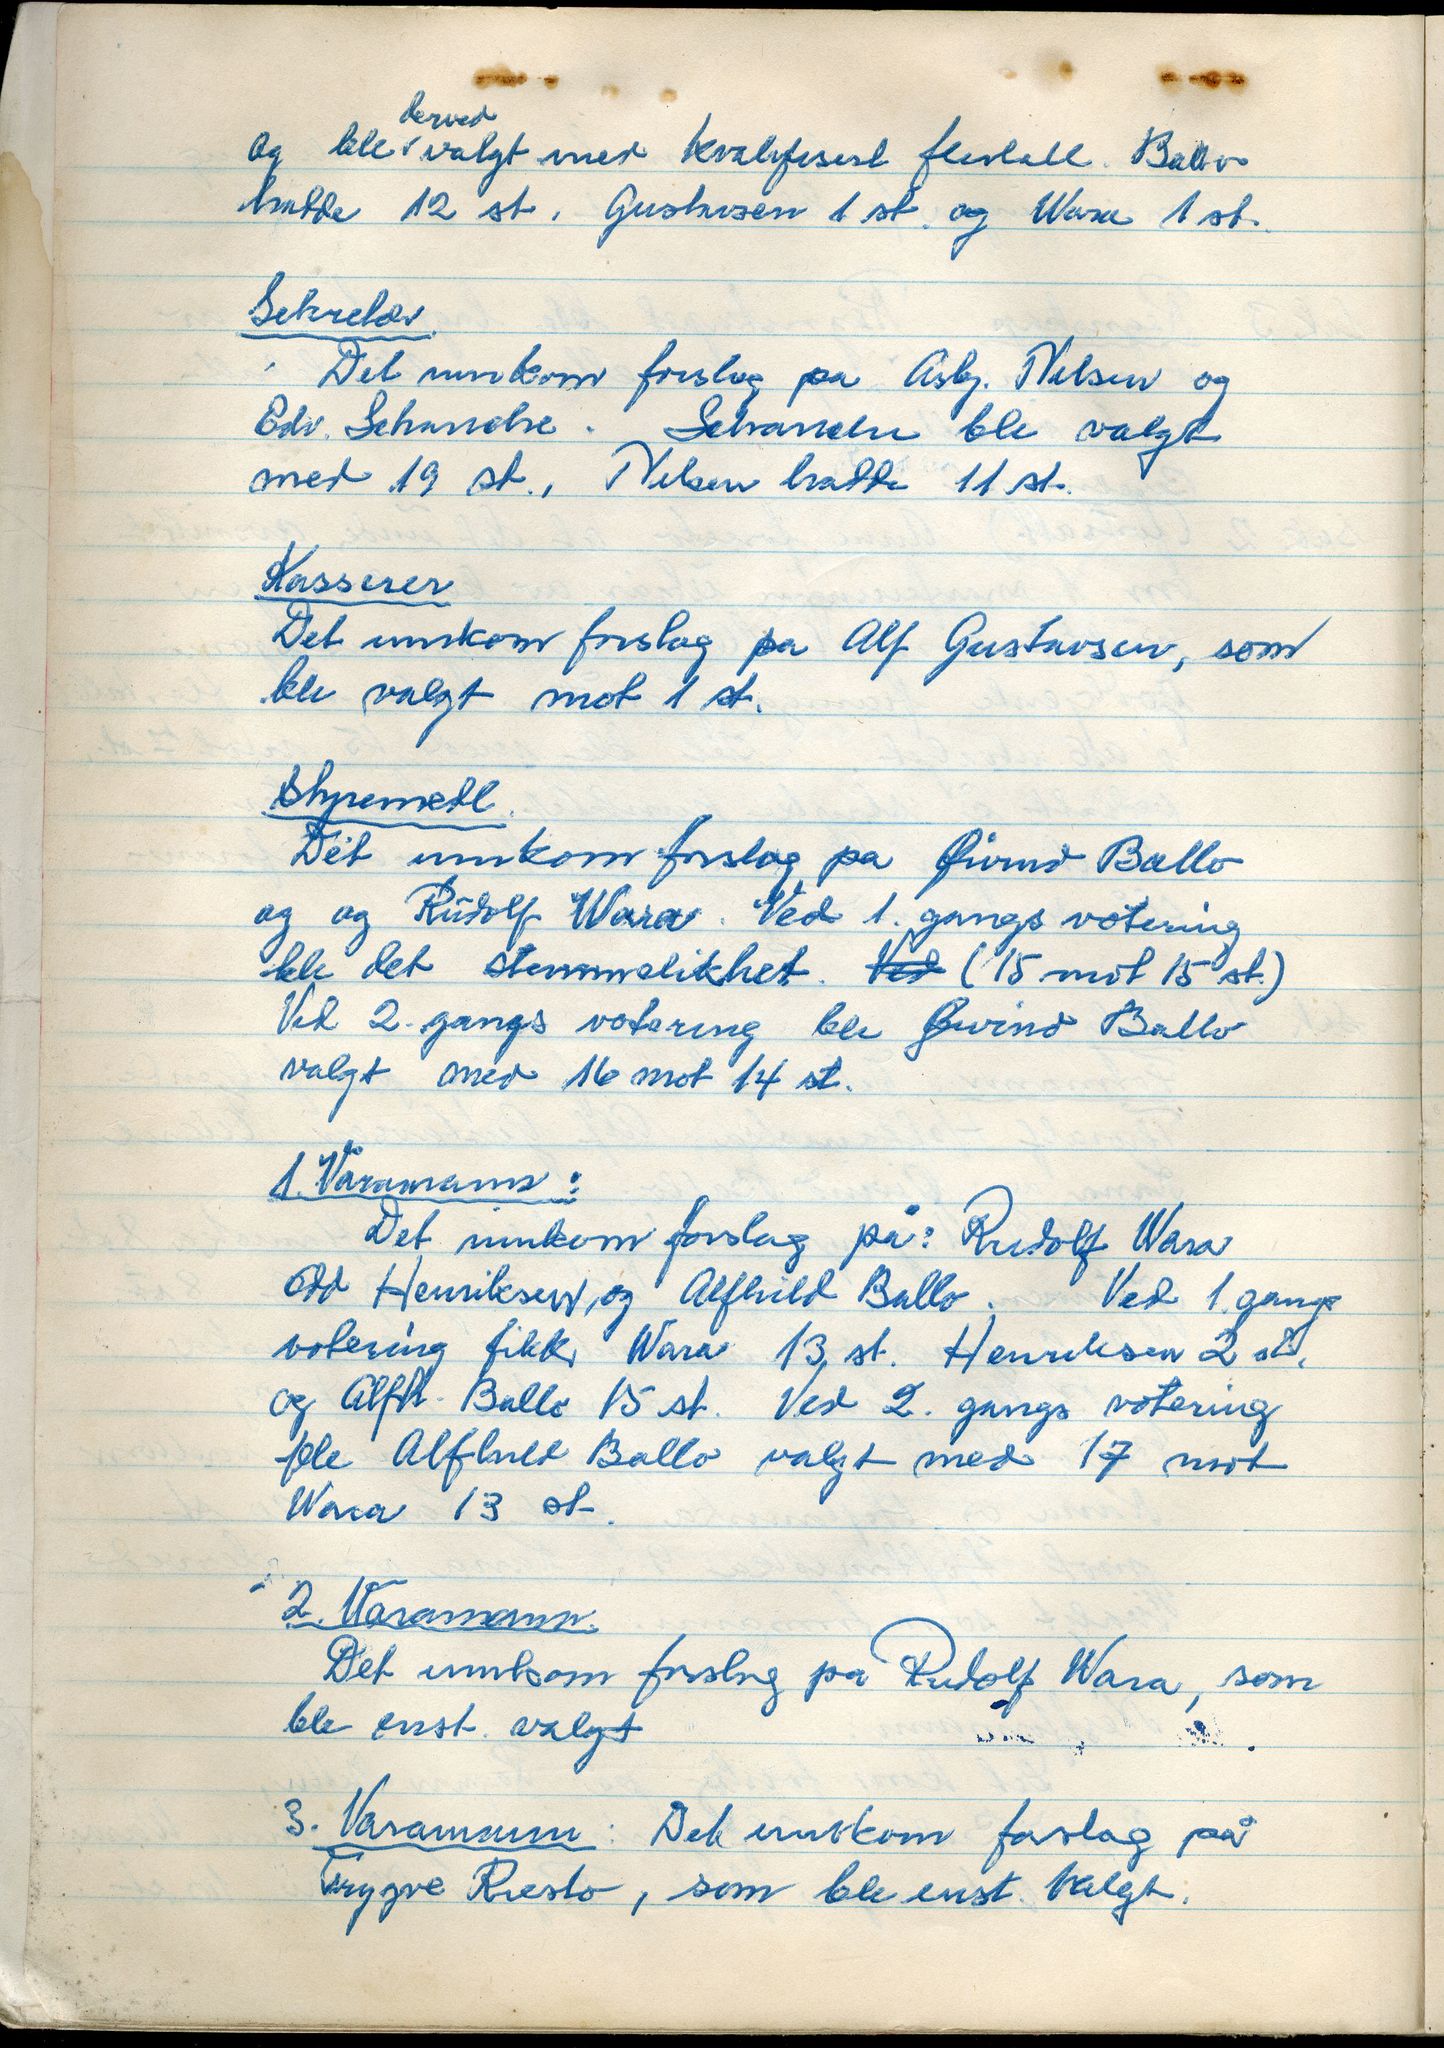 derved
og ble valgt med kvalifisert flertall. Ballo
hadde 12 st. Gustavsen 1 st. og Wara 1 st.
Sekretær
Det innkom forslag på Asbj. Nilsen og
Edv. Schanche. Schanche ble valgt
med 19 st., Nilsen hadde 11 st.
Kasserer
Det innkom forslag på Alf Gustavsen, som
ble valgt mot 1 st.
Styremedl.
Det innkom forslag på Øivind Ballo
og og Rudolf Wara. Ved 1. gangs votering
ble det stemmelikhet. Ved (15 mot 15 st.)
Ved 2. gangs votering ble Øivind Ballo
valgt med 16 mot 14 st.
1. Varamann:
Det innkom forslag på: Rudolf Wara
Odd Henriksen, og Alfhild Ballo. Ved 1. gangs
votering fikk Wara 13 st. Henriksen 2 st.
og Alfh. Ballo 15 st. Ved 2. gangs votering
ble Alfhild Ballo valgt med 17 mot
Wara 13 st.
2. Varamann.
Det innkom forslag på Rudolf Wara, som
ble enst. valgt
3. Varamann: Det innkom forslag på
Trygve Riesto, som ble enst. valgt.